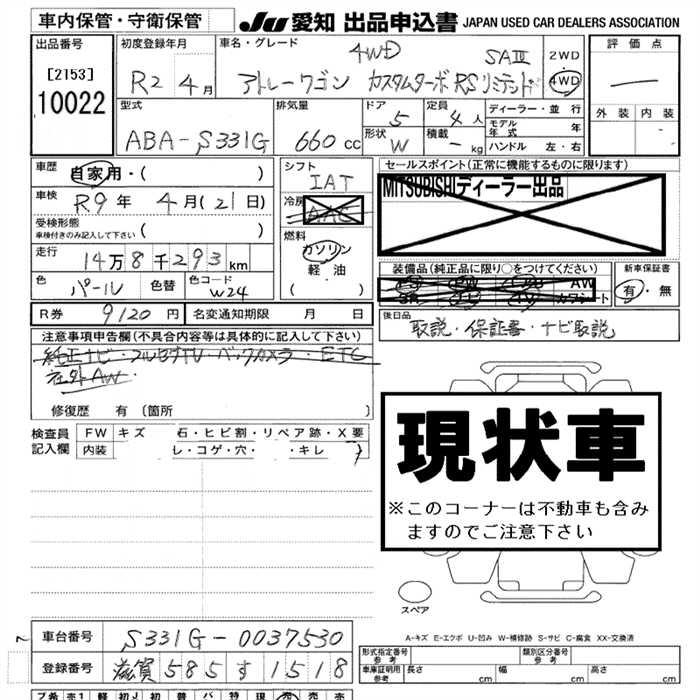 車内保管・守衛保管
JU 愛知 出品申込書 JAPAN USED CAR DEALERS ASSOCIATION
出品番号
[2153]
10022
初度登録年月
R2年4月
車名・グレード
4WD SAⅢ
アトレーワゴン カスタムターボRSリミテッド
2WD
4WD
評価点
外装 内装
型式
ABA-S331G
排気量
660cc
ドア
5
形状
W
定員
4人
積載
-kg
ディーラー・並行
モデル年式 年
ハンドル 左・右
車歴
自家用・( )
車検
R9年 4月(21日)
受検形態
車検付きのみ記入して下さい ( )
走行
14万8千293km
色
パール
色替
色コード
W24
シフト
IAT
冷房
AAC
燃料
ガソリン
軽油
( )
セールスポイント(正常に機能するものに限ります)
MITSUBISHIディーラー出品
装備品(純正品に限り○をつけてください)
AW
新車保証書
有・無
後日品
取説・保証書・ナビ取説
R券 9120円
名変通知期限 月 日
注意事項申告欄(不具合内容等は具体的に記入して下さい)
純正ナビ・フルセグTV・バックカメラ・ETC
社外AW.
修復歴 有(箇所 )
検査員記入欄
FW キズ 石・ヒビ割・リペア跡・X要
内装 レ・コゲ・穴・ ・キレ
現状車
※このコーナーは不動車も含みますのでご注意下さい
スペア
A-キズ E-エクボ U-凹み W-補修跡 S-サビ C-腐食 XX-交換済
車台番号 S331G-0037530
登録番号 滋賀 585 す 1518
形式指定番号 参考
類別区分番号 参考
車庫証明用 参考
長さ cm 幅 cm 高さ cm